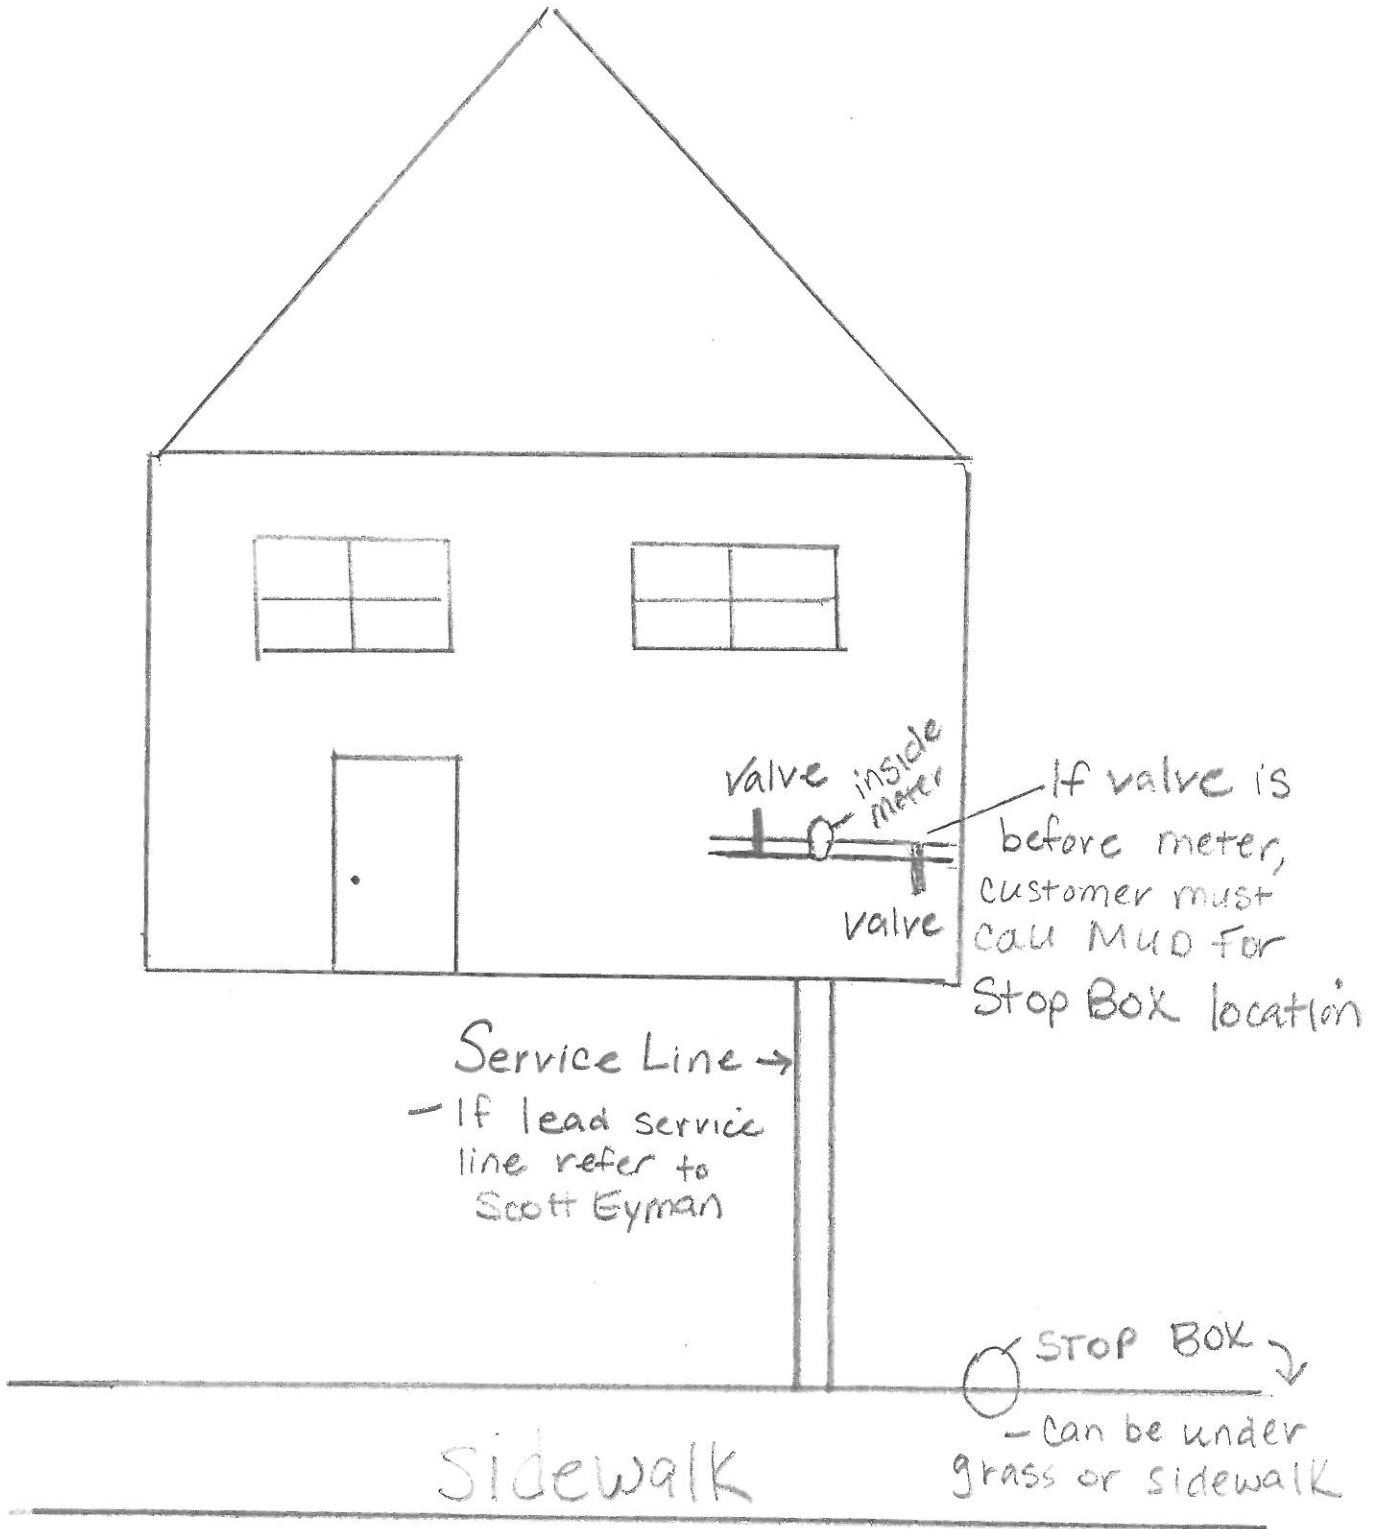 Valve
inside
meter
If valve is
before meter,
customer must
call MUD For
Stop Box location
valve
Service Line →
- If lead service
line refer to
Scott Eyman
STOP BOX
- can be under
grass or sidewalk
Sidewalk